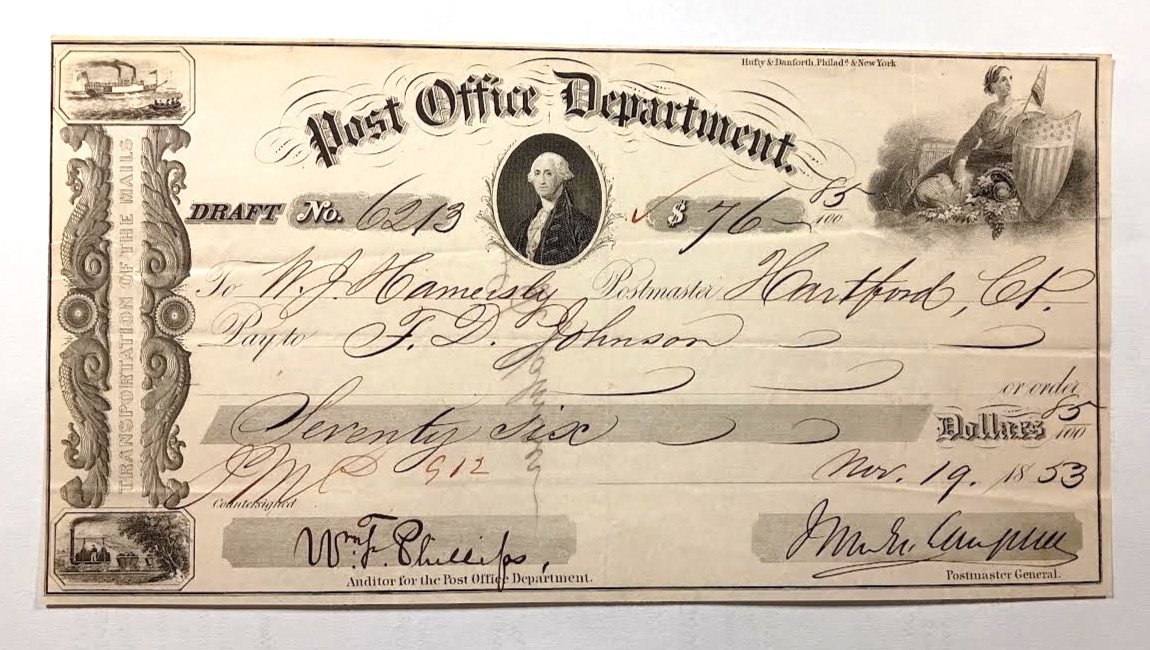 Hufty & Danforth, Philadª & New York
Post Office Department.
TRANSPORTATION OF THE MAILS
DRAFT No. 6213 $ 76 - 85/100
To W. J. Hamersly Postmaster Hartford, Ct.
Pay to F. D. Johnson
or order
Seventy six Dollars 85/100
912
Nov. 19. 1853
Countersigned
Wm. F. Phillips,
Auditor for the Post Office Department.
Campbell
Postmaster General.